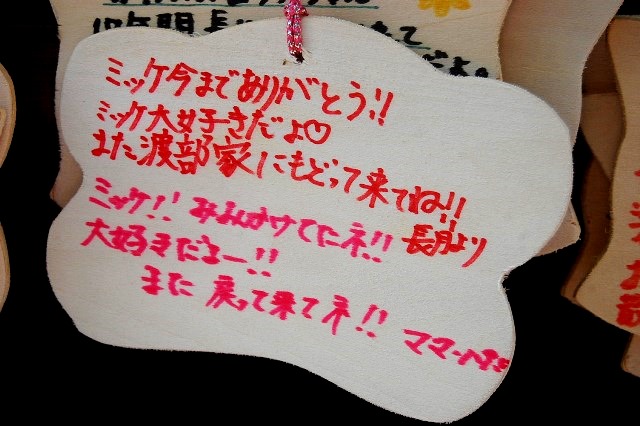 10年間長い
ミッケ今までありがとう!!
ミック大好きだよ♡
また渡部家にもどって来てね!!
長月より
ミッケ!!
大好きだよー!!
また 戻って来てネ!!
ママ